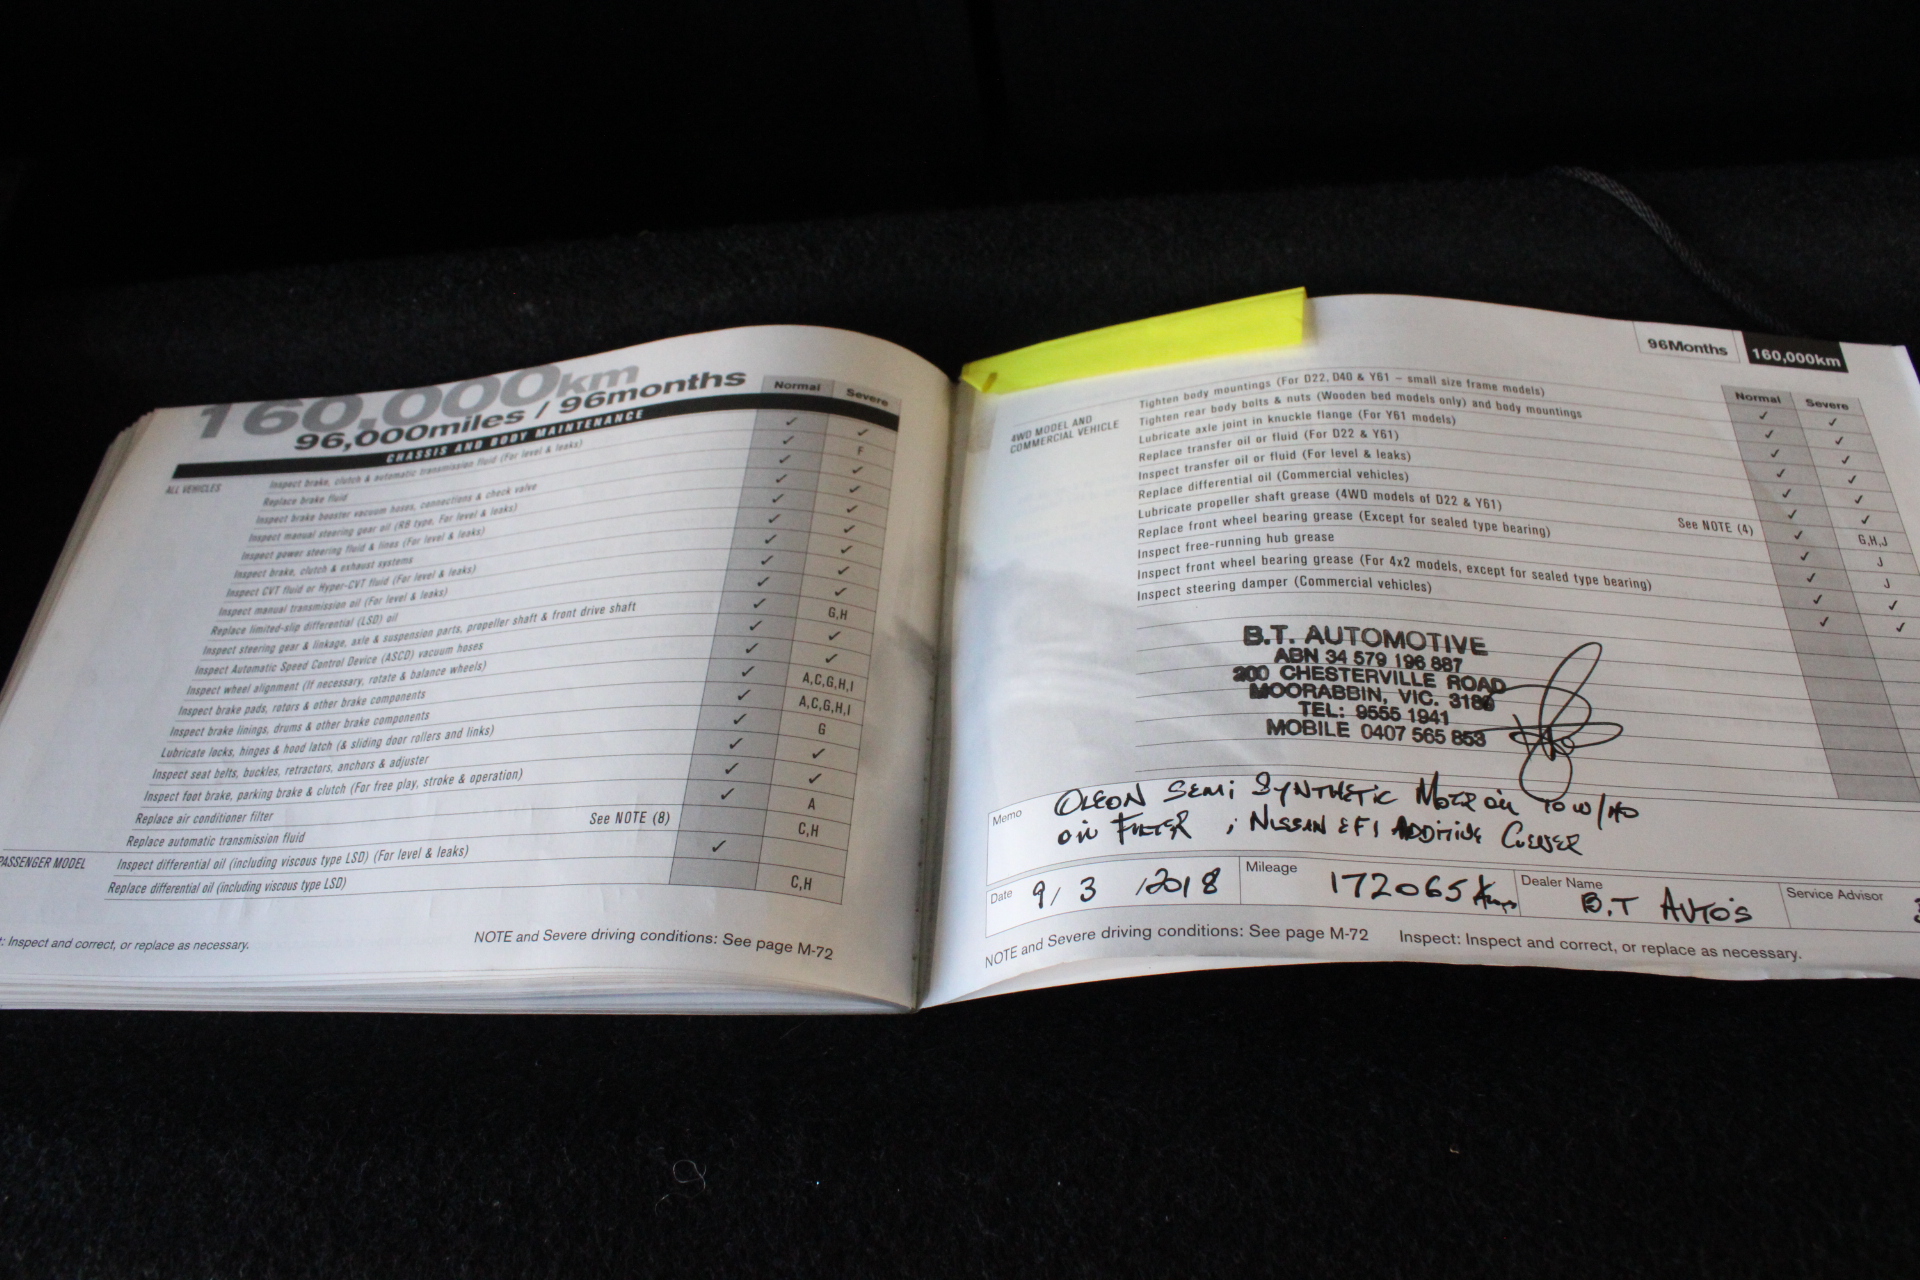 160,000km
96,000miles / 96months
Normal Severe
CHASSIS AND BODY MAINTENANCE
ALL VEHICLES Inspect brake, clutch & automatic transmission fluid (For level & leaks) ✓ ✓
Replace brake fluid ✓ F
Inspect brake booster vacuum hoses, connections & check valve ✓ ✓
Inspect manual steering gear oil (RB type, For level & leaks) ✓ ✓
Inspect power steering fluid & lines (For level & leaks) ✓ ✓
Inspect brake, clutch & exhaust systems ✓ ✓
Inspect CVT fluid or Hyper-CVT fluid (For level & leaks) ✓ ✓
Inspect manual transmission oil (For level & leaks) ✓ ✓
Replace limited-slip differential (LSD) oil ✓ G,H
Inspect steering gear & linkage, axle & suspension parts, propeller shaft & front drive shaft ✓ ✓
Inspect Automatic Speed Control Device (ASCD) vacuum hoses ✓ ✓
Inspect wheel alignment (If necessary, rotate & balance wheels) ✓ A,C,G,H,I
Inspect brake pads, rotors & other brake components ✓ A,C,G,H,I
Inspect brake linings, drums & other brake components ✓ G
Lubricate locks, hinges & hood latch (& sliding door rollers and links) ✓ ✓
Inspect seat belts, buckles, retractors, anchors & adjuster ✓ ✓
Inspect foot brake, parking brake & clutch (For free play, stroke & operation) ✓ A
Replace air conditioner filter See NOTE (8) C,H
Replace automatic transmission fluid ✓
PASSENGER MODEL Inspect differential oil (including viscous type LSD) (For level & leaks) C,H
Replace differential oil (including viscous type LSD)
: Inspect and correct, or replace as necessary. NOTE and Severe driving conditions: See page M-72
96Months 160,000km
Normal Severe
4WD MODEL AND COMMERCIAL VEHICLE
Tighten body mountings (For D22, D40 & Y61 – small size frame models) ✓ ✓
Tighten rear body bolts & nuts (Wooden bed models only) and body mountings ✓ ✓
Lubricate axle joint in knuckle flange (For Y61 models) ✓ ✓
Replace transfer oil or fluid (For D22 & Y61) ✓ ✓
Inspect transfer oil or fluid (For level & leaks) ✓ ✓
Replace differential oil (Commercial vehicles) ✓ ✓
Lubricate propeller shaft grease (4WD models of D22 & Y61) See NOTE (4) ✓ G,H,J
Replace front wheel bearing grease (Except for sealed type bearing) ✓ J
Inspect free-running hub grease ✓ J
Inspect front wheel bearing grease (For 4x2 models, except for sealed type bearing) ✓ ✓
Inspect steering damper (Commercial vehicles) ✓ ✓
B.T. AUTOMOTIVE
ABN 34 579 196 887
200 CHESTERVILLE ROAD
MOORABBIN, VIC. 3189
TEL: 9555 1941
MOBILE 0407 565 853
Memo OLEON SEMI SYNTHETIC MOTOR OIL 10W/40
OIL FILTER ; NISSAN EFI ADDITIVE CLEANER
Date 9/3/2018 Mileage 172065 Kms Dealer Name B.T AUTO'S Service Advisor
NOTE and Severe driving conditions: See page M-72 Inspect: Inspect and correct, or replace as necessary.